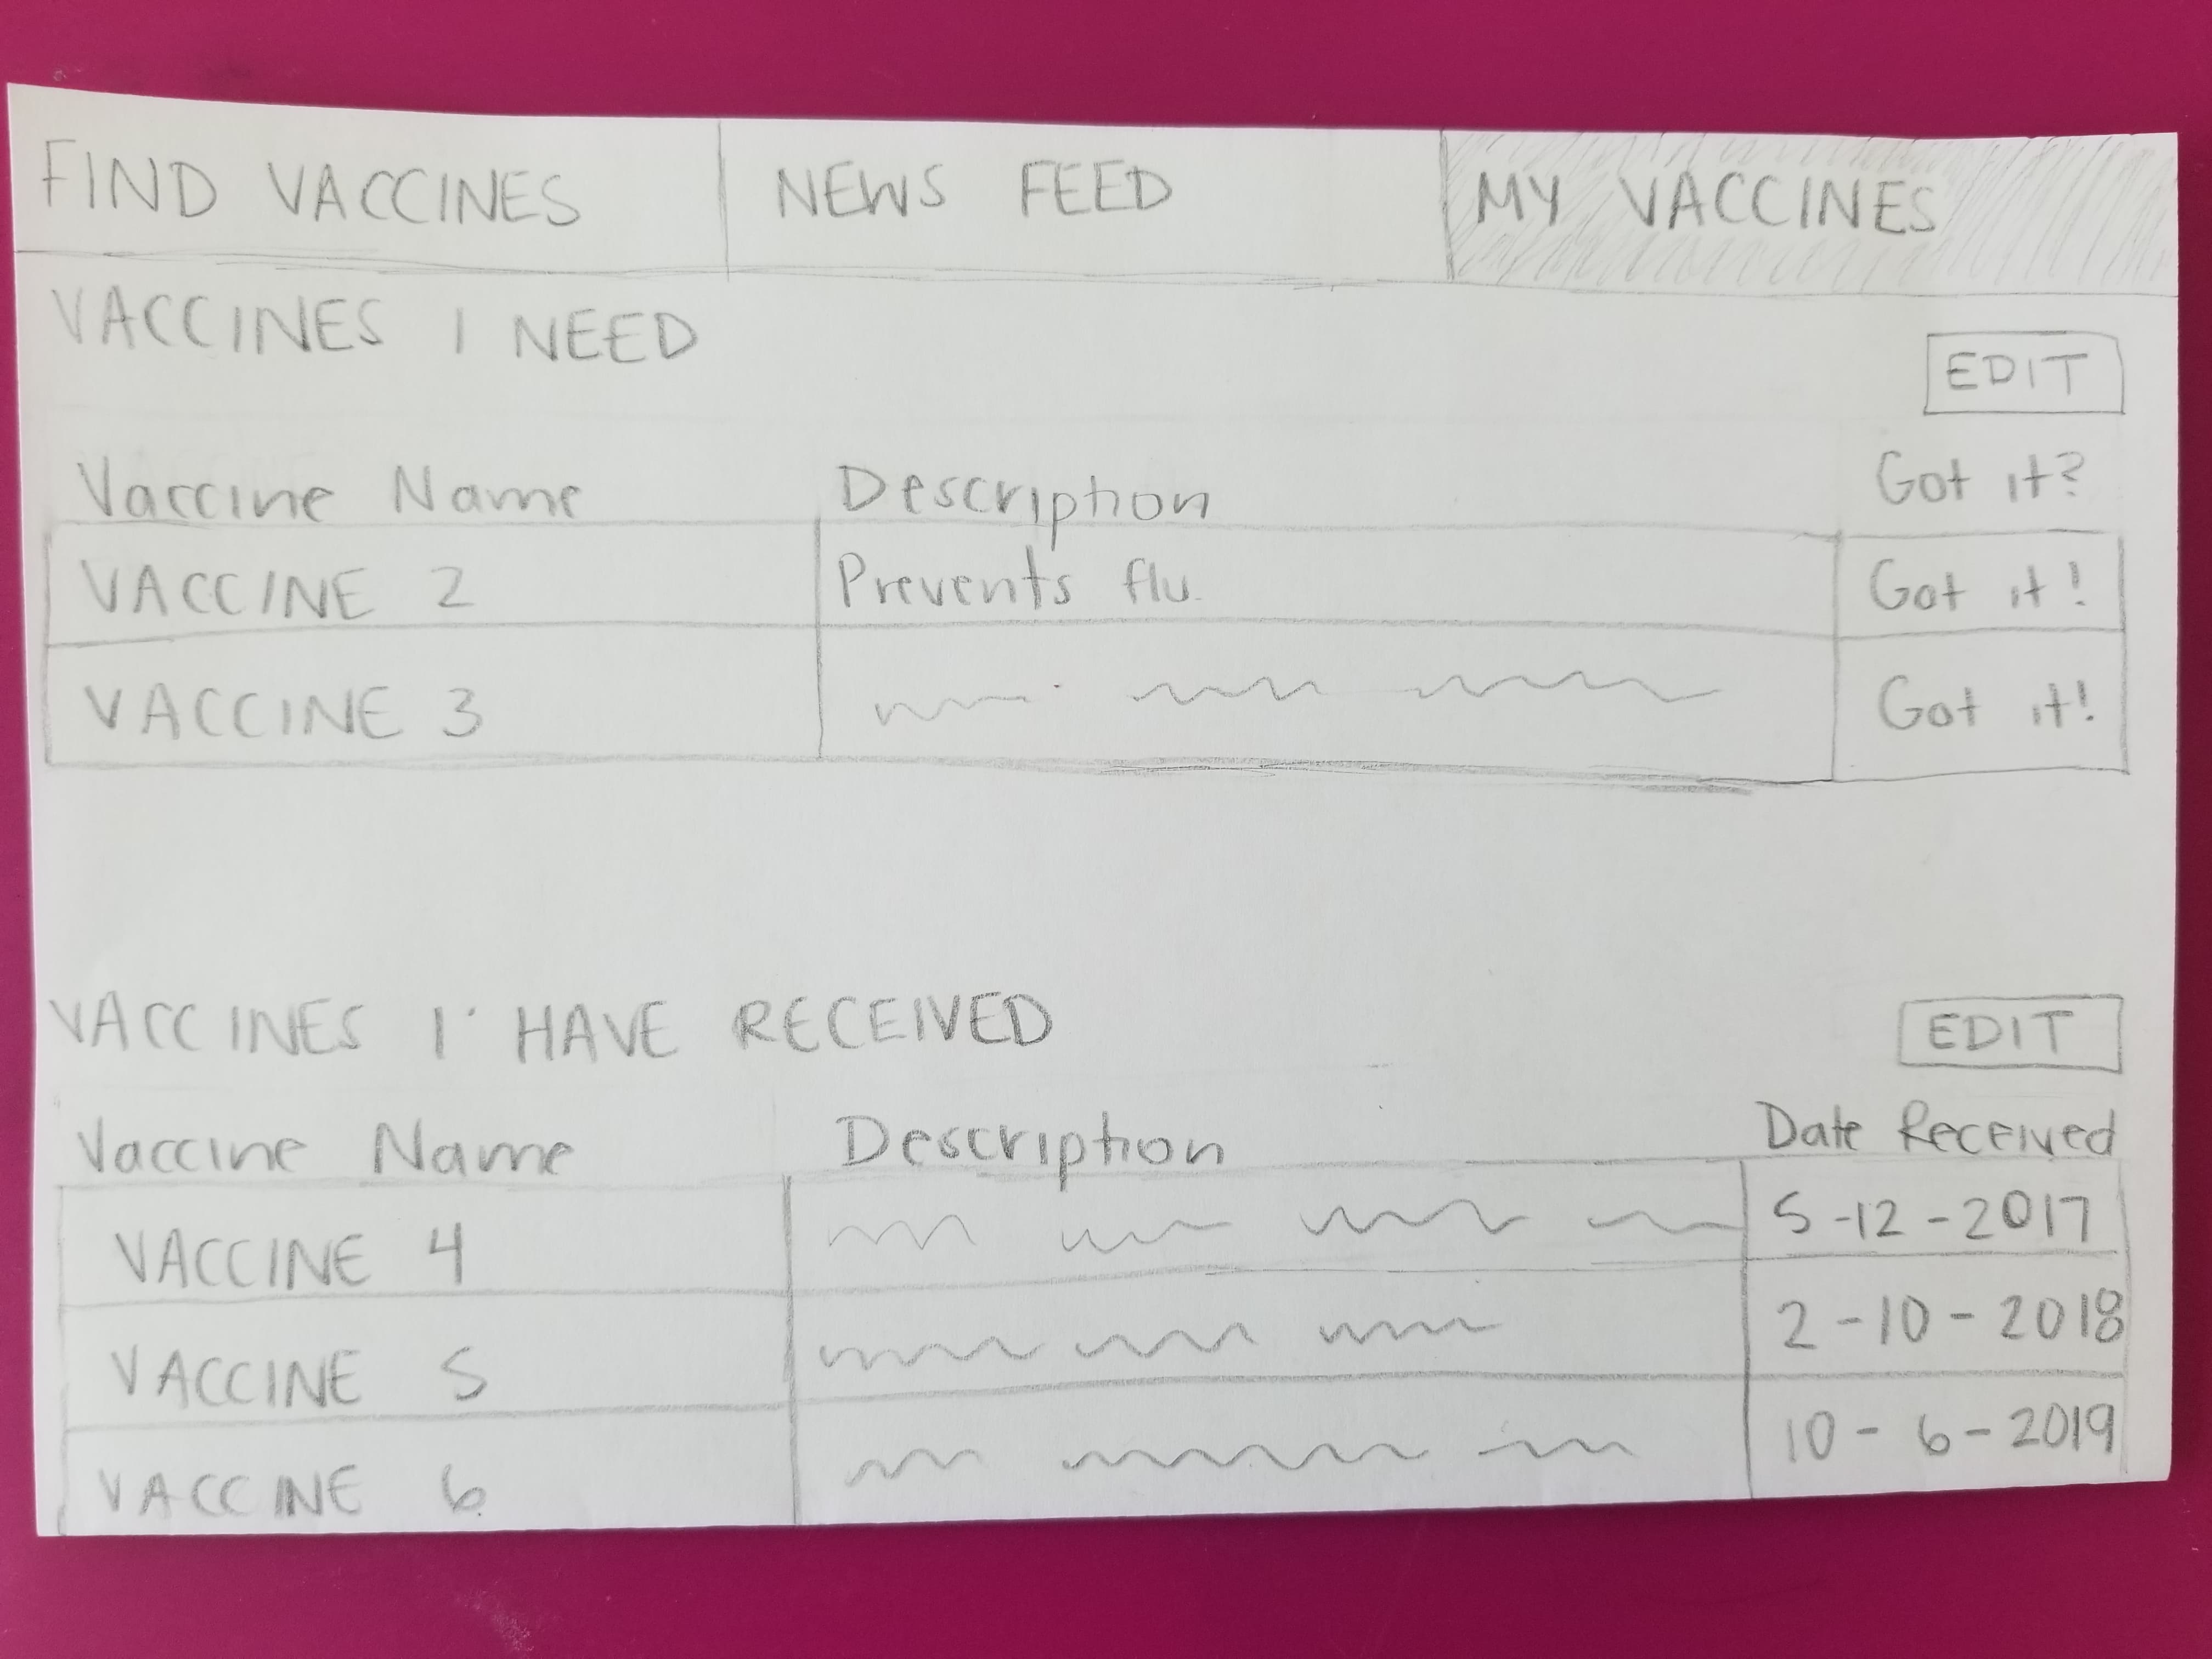 FIND VACCINES NEWS FEED MY VACCINES
VACCINES I NEED
EDIT
Vaccine Name Description Got it?
VACCINE 2 Prevents flu. Got it!
VACCINE 3 Got it!
VACCINES I HAVE RECEIVED EDIT
Vaccine Name Description Date Received
VACCINE 4 5-12-2017
VACCINE 5 2-10-2018
VACCINE 6 10-6-2019